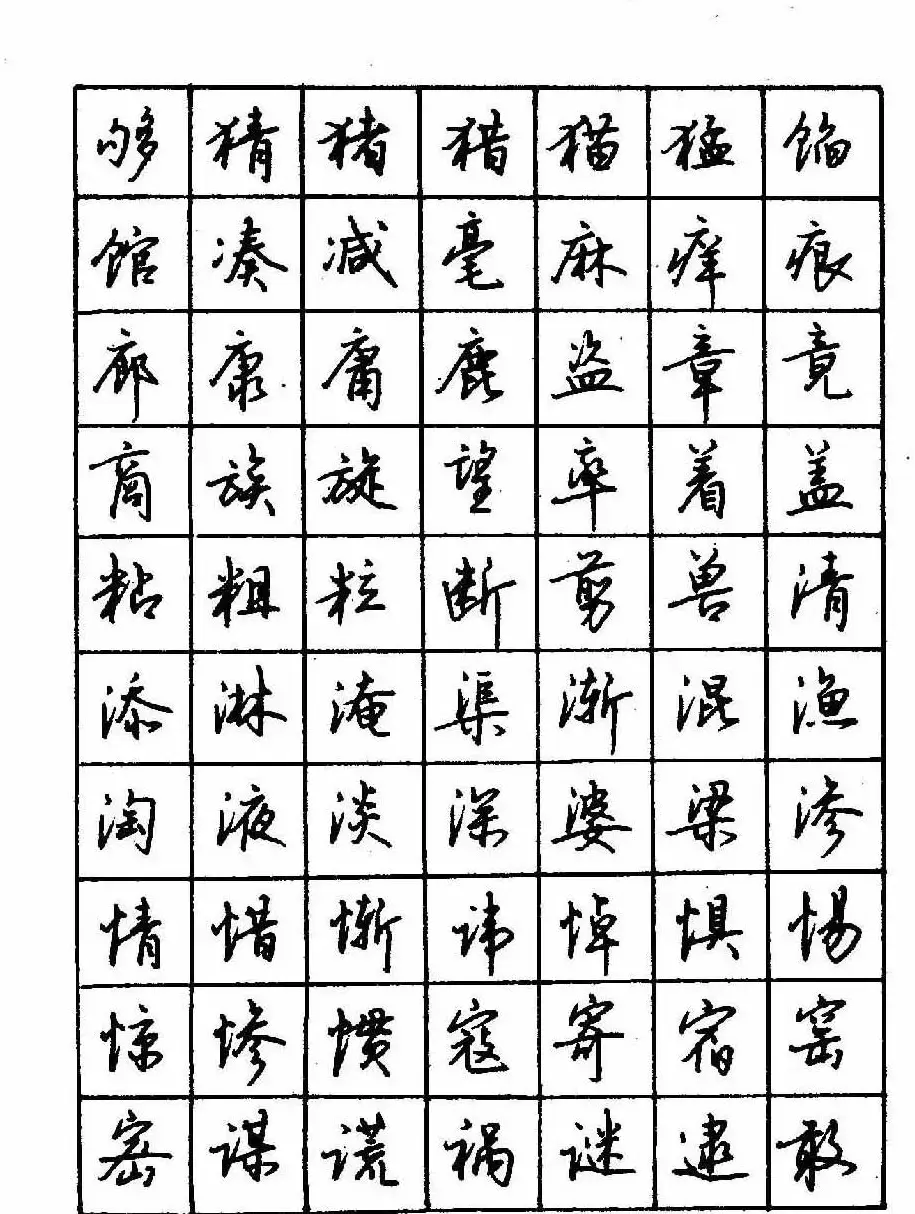 够猜猪猎猫猛馅
馆凑减毫麻痒痕
廊康庸鹿盗章竟
商族旋望率着盖
粘粗粒断剪兽清
添淋淹渠渐混渔
淘液淡深婆梁渗
情惜惭讳悼惧惕
惊惨惯寇寄宿窑
密谋谎祸谜逮敢